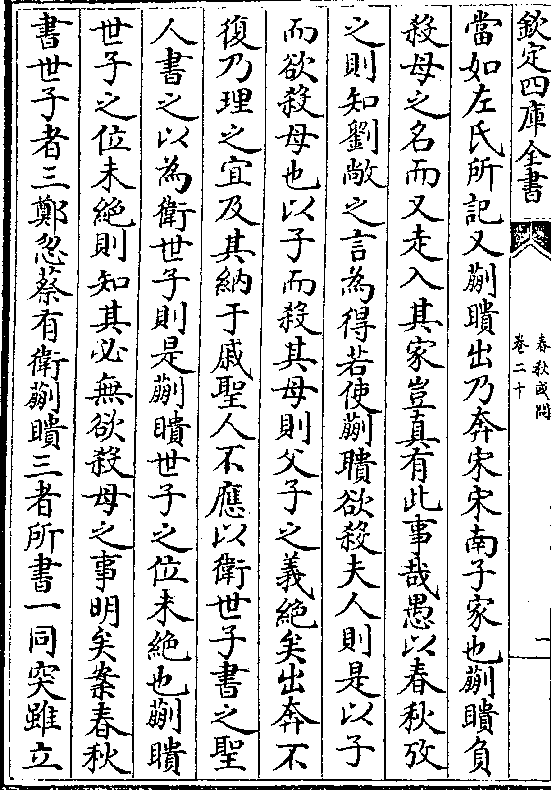 欽定四庫全書
春秋或問
卷二十
一
當如左氏所記又蒯聵出乃奔宋宋南子家也蒯聵負
殺母之名而又走入其家豈真有此事哉愚以春秋攷
之則知劉敞之言為得若使蒯聵欲殺夫人則是以子
而欲殺母也以子而殺其母則父子之義絶矣出奔不
復乃理之宜及其納于戚聖人不應以衛世子書之聖
人書之以為衛世子則是蒯聵世子之位未絶也蒯聵
世子之位未絶則知其必無欲殺母之事明矣案春秋
書世子者三鄭忽蔡有衛蒯聵三者所書一同突雖立